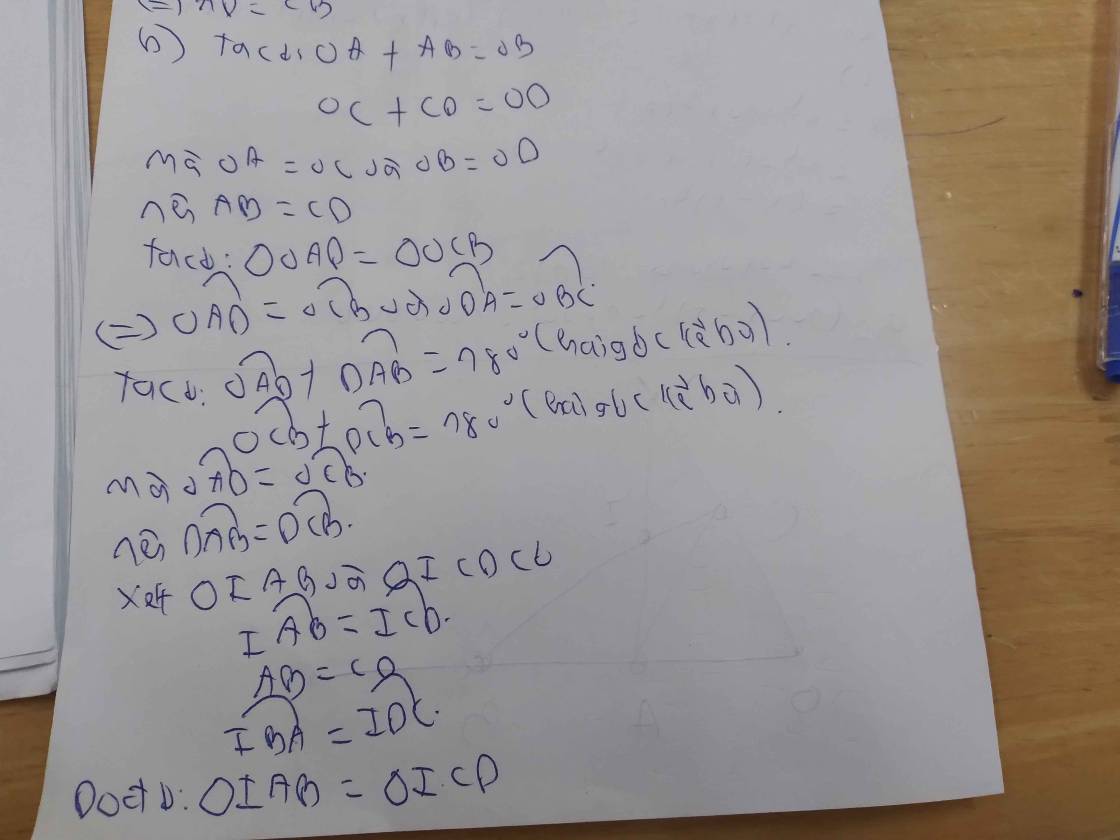 (=) AD = CB
b) Ta có: OA + AB = OB
OC + CD = OD
mà OA = OC và OB = OD
nên AB = CD
Ta có: △OAD = △OCB
(=) OAD = OCB và ODA = OBC
Ta có: OAD + DAB = 180° (hai góc kề bù).
OCB + DCB = 180° (hai góc kề bù).
mà OAD = OCB.
nên DAB = DCB.
Xét △IAB và △ICD có
IAB = ICD.
AB = CD
IBA = IDC.
Do đó: △IAB = △ICD